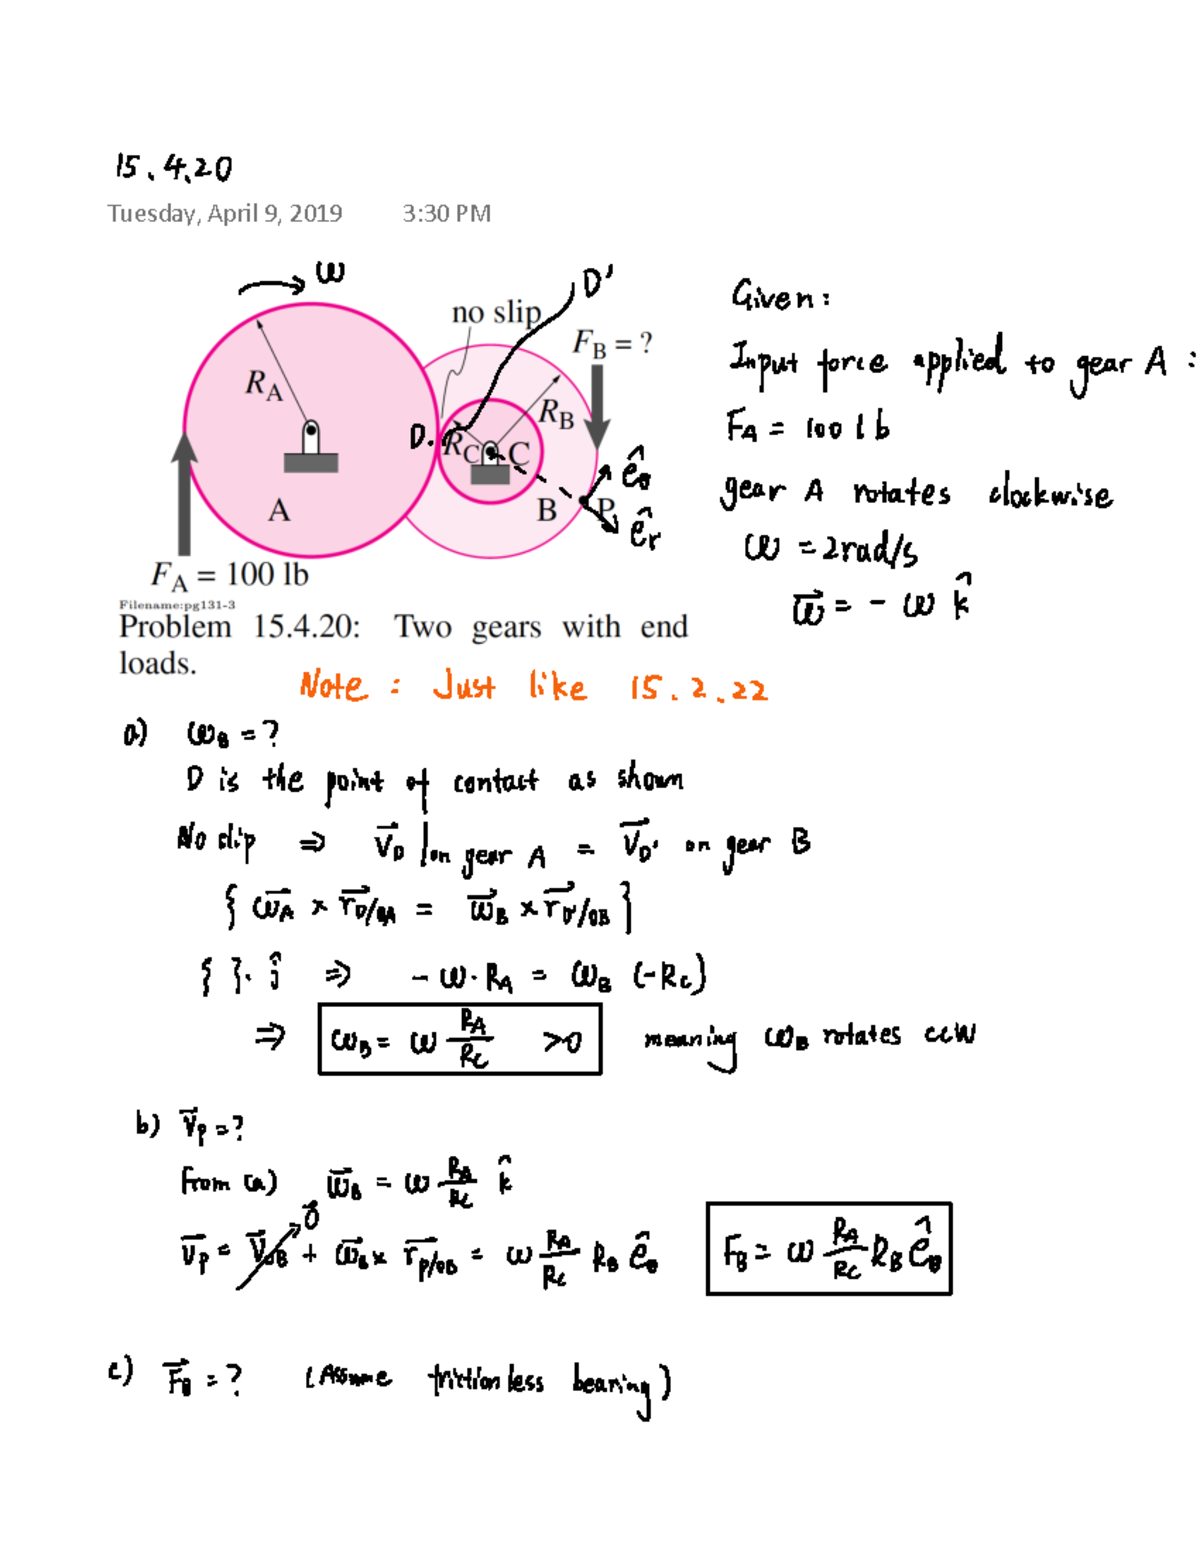 15.4.20
Tuesday, April 9, 2019 3:30 PM
ω
D'
no slip
F_B = ?
R_A
R_B
D.
R_C
C
ê_θ
A
B
P
ê_r
F_A = 100 lb
Filename:pg131-3
Problem 15.4.20: Two gears with end
loads.
Given:
Input force applied to gear A :
F_A = 100 lb
gear A rotates clockwise
ω = 2rad/s
ω⃗ = - ω k̂
Note : Just like 15.2.22
a) ω_B = ?
D is the point of contact as shown
No slip ⇒ v⃗_D |on gear A = v⃗_D' on gear B
{ ω⃗_A × r⃗_D/OA = ω⃗_B × r⃗_D'/OB }
{ }· ĵ ⇒ - ω · R_A = ω_B (-R_C)
⇒ ω_B = ω R_A/R_C >0 meaning ω_B rotates ccw
b) v⃗_P = ?
From (a) ω⃗_B = ω R_A/R_C k̂
v⃗_P = v⃗_OB→0⃗ + ω⃗_B × r⃗_P/OB = ω R_A/R_C R_B ê_θ F_B = ω R_A/R_C R_B ê_θ
c) F⃗_B = ? (Assume frictionless bearing)